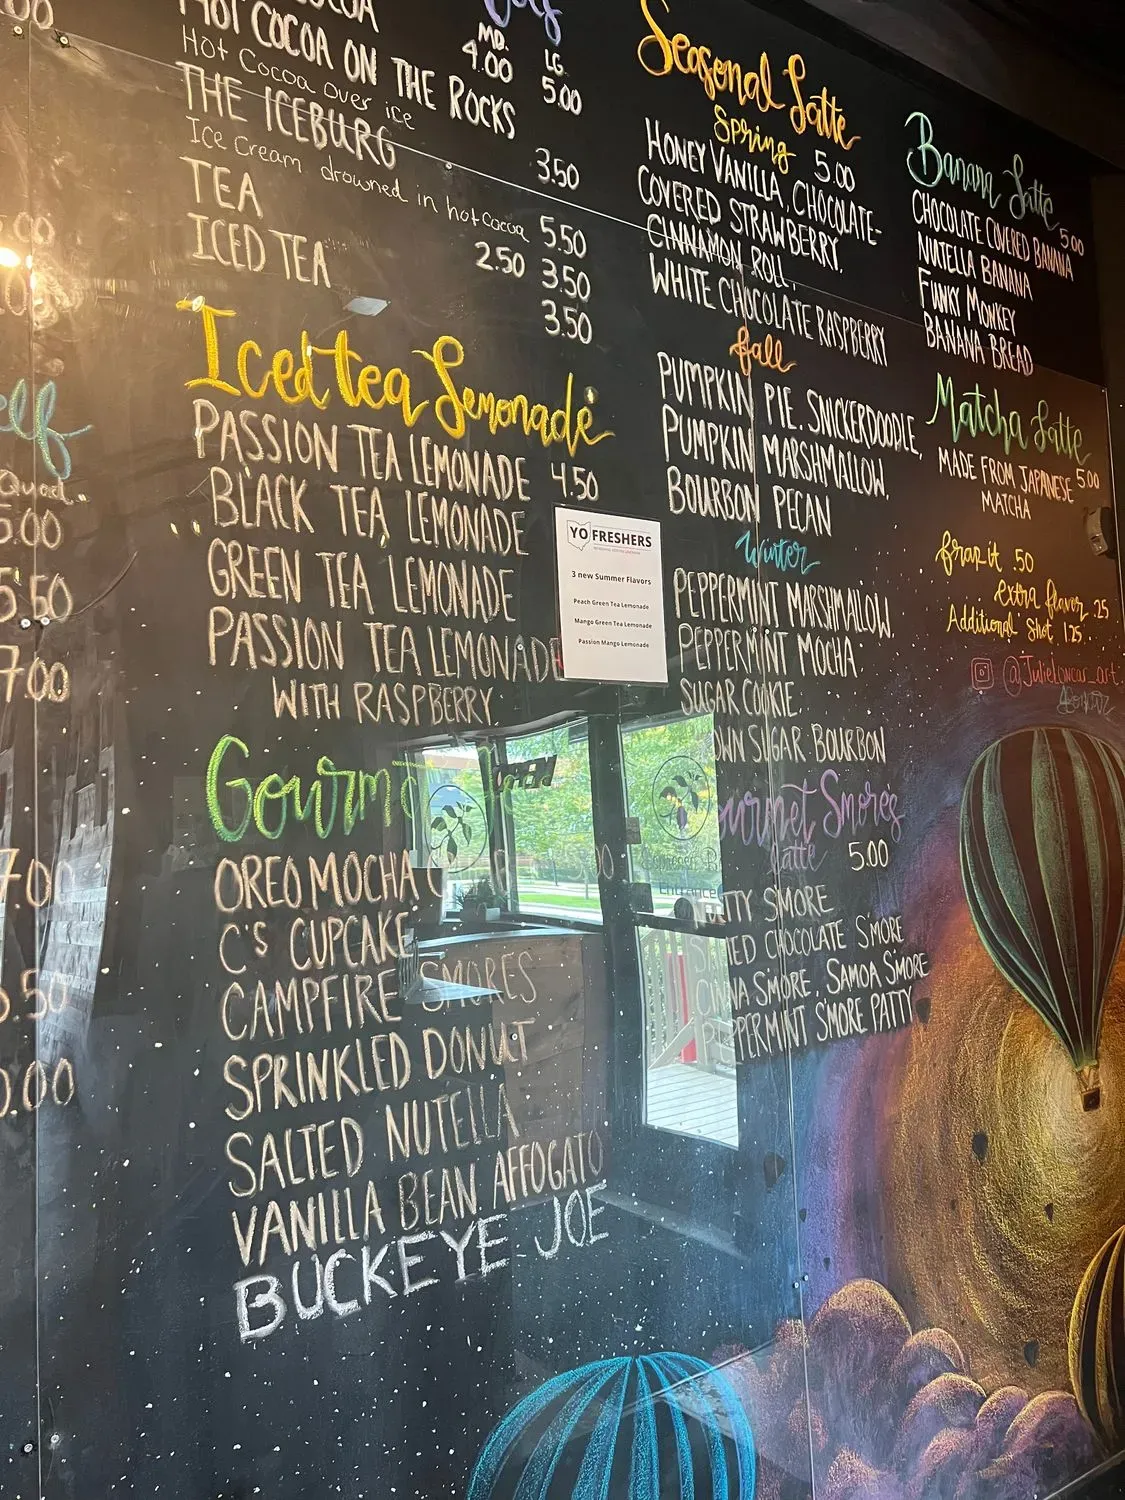 00
COCOA
HOT COCOA ON THE ROCKS
Hot Cocoa over ice
THE ICEBURG
Ice Cream drowned in hot cocoa
TEA
ICED TEA
MD. LG.
4.00 5.00
3.50
5.50
2.50 3.50
3.50
Iced tea Lemonade
PASSION TEA LEMONADE 4.50
BLACK TEA LEMONADE
GREEN TEA LEMONADE
PASSION TEA LEMONADE
WITH RASPBERRY
Gourm
OREO MOCHA
C'S CUPCAKE
CAMPFIRE SMORES
SPRINKLED DONUT
SALTED NUTELLA
VANILLA BEAN AFFOGATO
BUCKEYE JOE
Quad
5.00
5.50
7.00
7.00
.50
0.00
YO FRESHERS
3 new Summer Flavors
Peach Green Tea Lemonade
Mango Green Tea Lemonade
Passion Mango Lemonade
OPEN
Seasonal Latte
Spring 5.00
HONEY VANILLA, CHOCOLATE-
COVERED STRAWBERRY,
CINNAMON ROLL,
WHITE CHOCOLATE RASPBERRY
fall
PUMPKIN PIE, SNICKERDOODLE,
PUMPKIN MARSHMALLOW,
BOURBON PECAN
Winter
PEPPERMINT MARSHMALLOW,
PEPPERMINT MOCHA,
SUGAR COOKIE,
OWN SUGAR BOURBON
urmet Smores
Latte 5.00
TY SMORE
ED CHOCOLATE S'MORE
S'MORE, SAMOA S'MORE
PEPPERMINT S'MORE PATTY
Banana Latte
5.00
CHOCOLATE COVERED BANANA
NUTELLA BANANA
FUNKY MONKEY
BANANA BREAD
Matcha Latte
MADE FROM JAPANESE 5.00
MATCHA
frap it .50
extra flavor .25
Additional Shot 1.25